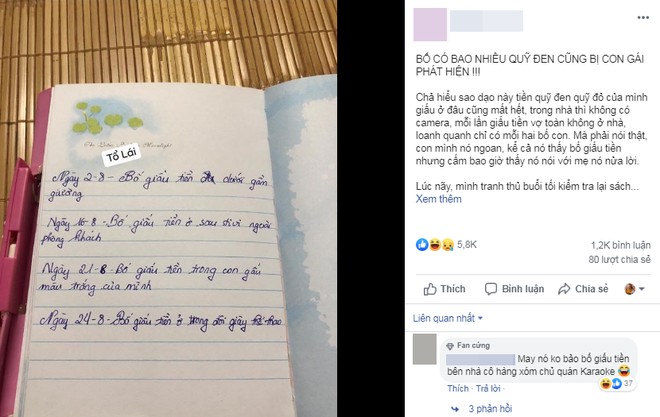 Tổ Lái
Ngày 2-8 - Bố giấu tiền dưới gần
giường
Ngày 16-8 - Bố giấu tiền ở sau tivi ngoài
phòng khách
Ngày 21-8 - Bố giấu tiền trong con gấu
màu trắng của mình
Ngày 24-8 - Bố giấu tiền ở trong đôi giày thể thao
BỐ CÓ BAO NHIÊU QUỸ ĐEN CŨNG BỊ CON GÁI
PHÁT HIỆN !!!
Chả hiểu sao dạo này tiền quỹ đen quỹ đỏ của mình
giấu ở đâu cũng mất hết, trong nhà thì không có
camera, mỗi lần giấu tiền vợ toàn không ở nhà,
loanh quanh chỉ có mỗi hai bố con. Mà phải nói thật,
con mình nó ngoan, kể cả nó thấy bố giấu tiền
nhưng cấm bao giờ thấy nó nói với mẹ nó nửa lời.
Lúc nãy, mình tranh thủ buổi tối kiểm tra lại sách...
Xem thêm
5,8K
1,2K bình luận
80 lượt chia sẻ
Thích
Bình luận
Chia sẻ
Liên quan nhất
Fan cứng
May nó ko bảo bố giấu tiền
bên nhà cô hàng xóm chủ quán Karaoke
37
Thích · Trả lời ·
3 phản hồi